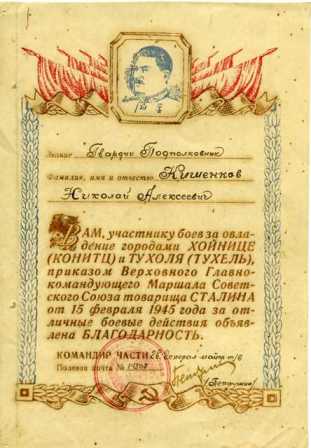 Звание Гвардии Подполковник
Фамилия, имя и отчество Кишенков
Николай Алексеевич
ВАМ, участнику боев за овла-
дение городами ХОЙНИЦЕ
(КОНИТЦ) и ТУХОЛЯ (ТУХЕЛЬ),
приказом Верховного Главно-
командующего Маршала Совет-
ского Союза товарища СТАЛИНА
от 15 февраля 1945 года за от-
личные боевые действия объяв-
лена БЛАГОДАРНОСТЬ.
КОМАНДИР ЧАСТИ Гв. генерал майор т/в
Полевая почта №